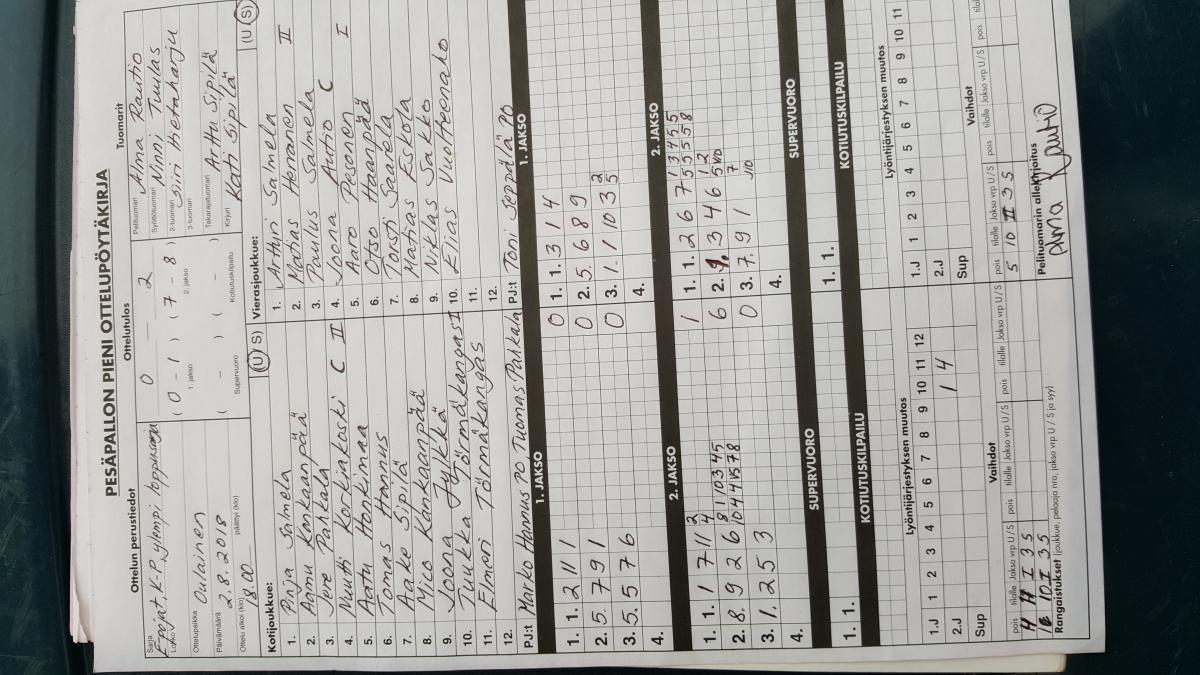 PESÄPALLON PIENI OTTELUPÖYTÄKIRJA
Ottelun perustiedot
Sarja Lohko E pojat, K-P ylempi loppusarja
Ottelupaikka Oulainen
Päivämäärä 2.8.2018
Ottelu alkoi (klo) 18.00 päättyi (klo)
Ottelutulos
0 — 2
( 0 - 1 ) ( 7 - 8 )
1. jakso 2. jakso
( - ) ( - )
Supervuoro Kotiutuskilpailu
Tuomarit
Pelituomari Alma Rautio
Syöttötuomari Ninni Tuulas
2-tuomari Siiri Hietaharju
3-tuomari
Takarajatuomari Arttu Sipilä
Kirjuri Kati Sipilä
Kotijoukkue: (U S)
1. Pinja Salmela
2. Aamu Kankaanpää
3. Jere Pahkala
4. Nuutti Korkiakoski C II
5. Aatu Honkimaa
6. Tomas Hannus
7. Aake Sipilä
8. Mico Kankaanpää
9. Joona Jylkkä
10. Tuukka Törmäkangas I
11. Elmori Törmäkangas
12.
PJ:t Marko Hannus PO, Tuomas Pahkala
Vierasjoukkue: (U S)
1. Arttiri Salmela
2. Matias Heranen II
3. Paulus Salmela
4. Joona Autio C
5. Aaro Pesonen I
6. Otso Haanpää
7. Torsti Saarela
8. Matias Eskola
9. Niklas Sakko
10. Elias Vuohtenaho
11.
12.
PJ:t Toni Seppälä PO
1. JAKSO
1. 1. 2 11 1
2. 5. 7 9 1
3. 5. 5 7 6
4.
1. JAKSO
0 1. 1. 3 1 4
0 2. 5. 6 8 9
0 3. 1. 1 10 3 2 5
4.
2. JAKSO
1. 1. 1 7 11 2 4
2. 8. 9 2 6 8 1 10 3 4 5
10 4 4 11 5 7 8
3. 1. 2 5 3
4.
2. JAKSO
1 1. 1. 2 6 7 1 3 4 5 5
5 5 5 5 8
6 2. 9. 3 4 6 1 2
0 3. 7. 9 1
4.
SUPERVUORO
1. 1.
SUPERVUORO
1. 1.
KOTIUTUSKILPAILU
KOTIUTUSKILPAILU
Lyöntijärjestyksen muutos
1 2 3 4 5 6 7 8 9 10 11 12
1.J
2.J 1 4
Sup
Lyöntijärjestyksen muutos
1 2 3 4 5 6 7 8 9 10 11
1.J
2.J
Sup
Vaihdot
pois tilalle Jakso vrp U/S pois tilalle Jakso vrp U/S pois tilalle Jakso vrp U/S
4 11 I 3 S
10 I 3 S
Vaihdot
pois tilalle Jakso vrp U/S pois tilalle Jakso vrp U/S pois
5 10 II 3 S
Rangaistukset (joukkue, pelaaja nro, jakso vrp U/S ja syy)
Pelituomarin allekirjoitus
Alma Rautio